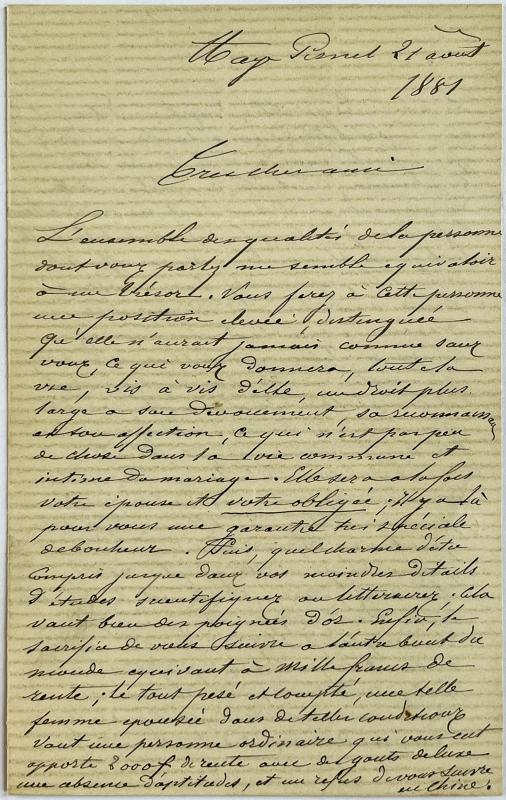 Hay Pesnel 21 août
1881
Très cher ami
L'ensemble des qualités de la personne
dont vous parlez me semble equivaloir
à un trésor. Vous ferez à cette personne
une position elevée distinguée
qu'elle n'aurait jamais connue sans
vous, ce qui vous donnera, toute la
vie, vis à vis d'elle, un droit plus
large à son devouement sa reconnaissance
et son affection, ce qui n'est pas peu
de chose dans la vie commune et
intime du mariage. Elle sera a la fois
votre épouse et votre obligée ; Il y a là
pour vous une garantie très spéciale
de bonheur. Puis, quel charme d'être
compris jusque dans vos moindres details
d'études scientifiques ou litteraires. Cela
vaut bien des poignées d'or. Enfin, le
sacrifice de vous suivre a l'autre bout du
monde equivaut à mille francs de
rente ; le tout pesé et compté, une belle
femme epousée dans de telles conditions
vaut une personne ordinaire qui vous eut
apporté 3000f de rente avec des gouts de luxe
une absence d'aptitudes, et un refus de vous suivre
en Chine.